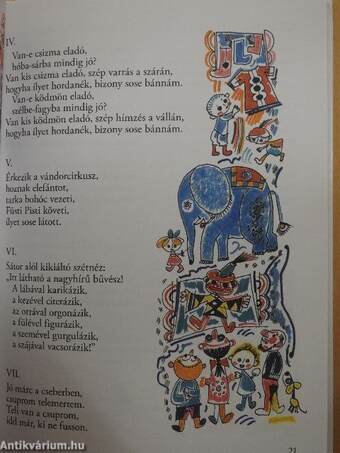 IV.
Van-e csizma eladó,
hóba-sárba mindig jó?
Van kis csizma eladó, szép varrás a szárán,
hogyha ilyet hordanék, bizony sose bánnám.
Van-e ködmön eladó,
szélbe-fagyba mindig jó?
Van kis ködmön eladó, szép hímzés a vállán,
hogyha ilyet hordanék, bizony sose bánnám.
V.
Érkezik a vándorcirkusz,
hoznak elefántot,
tarka bohóc vezeti,
Füsti Pisti követi,
ilyet sose látott.
VI.
Sátor alól kikiáltó szétnéz:
„Itt látható a nagyhírű bűvész!
A lábával karikázik,
a kezével citerázik,
az orrával orgonázik,
a fülével figurázik,
a szemével gurgulázik,
a szájával vacsorázik!”
VII.
Jó márc a cseberben,
csuprom telemertem.
Teli van a csuprom,
idd már, ki ne fusson.
21
Antikvárium.hu